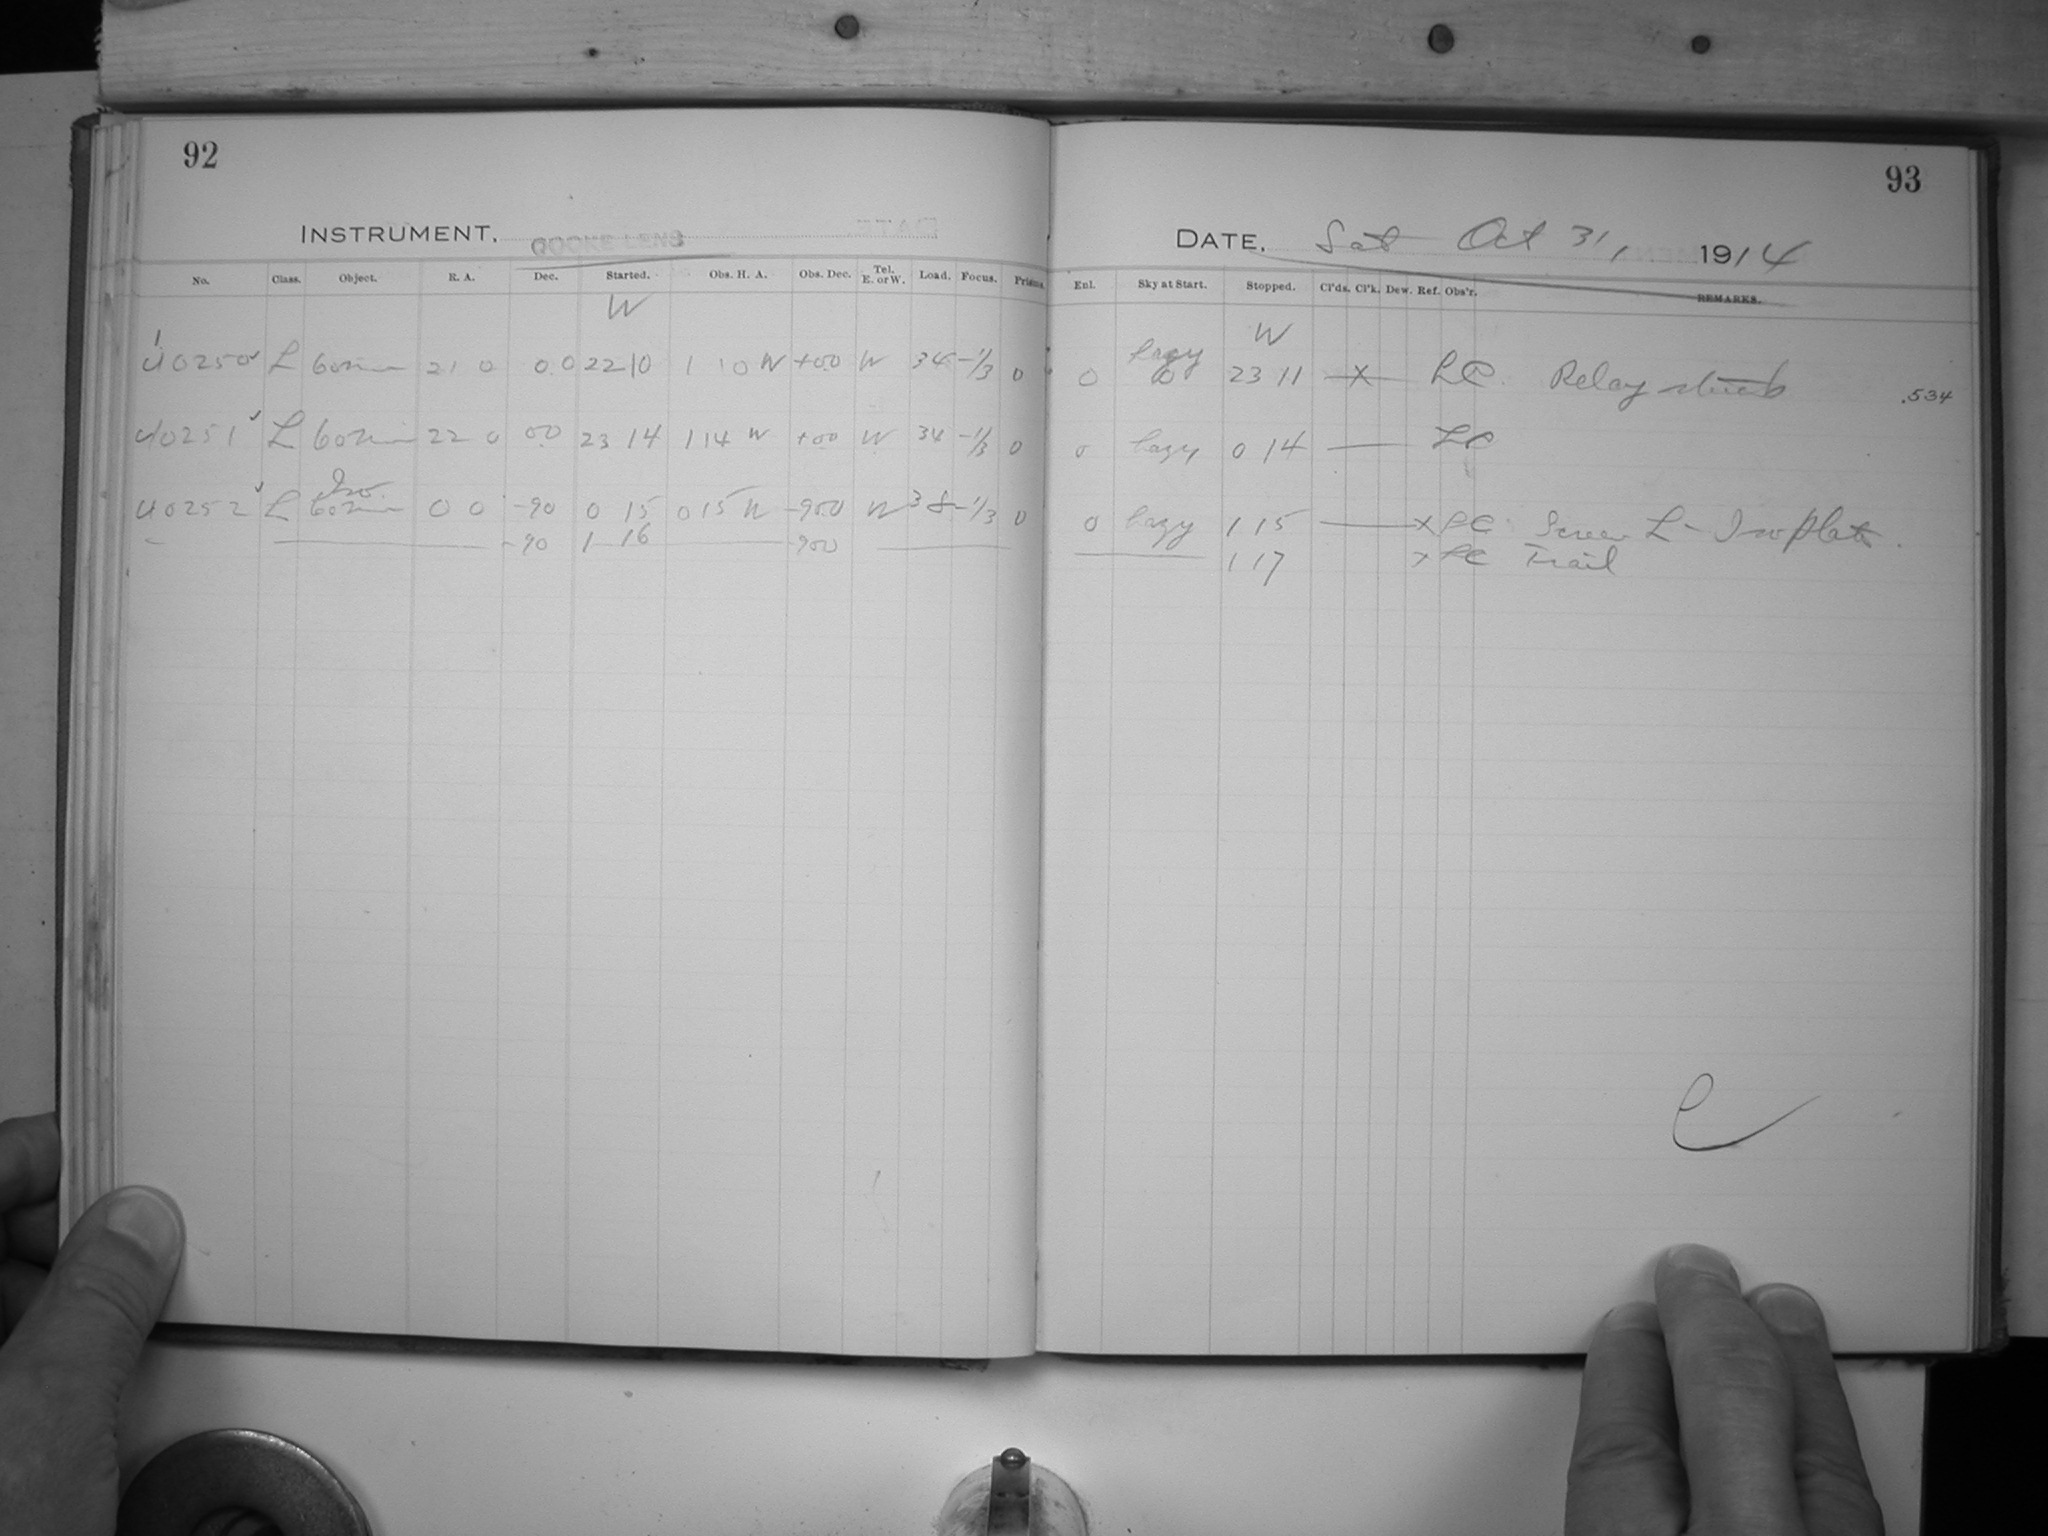 92
INSTRUMENT. COOKE LENS
No. Class. Object. R. A. Dec. Started. Obs. H. A. Obs. Dec. Tel. E. or W. Load. Focus. Prisms.
W
40250 L 60min 21 0 0.0 22 10 1 10 W +00 W 34 -1/3 0
40251 L 60min 22 0 00 23 14 1 14 W +00 W 34 -1/3 0
Iso.
40252 L 60min 0 0 -90 0 15 0 15 W -900 W 38 -1/3 0
-90 1 16 -900
93
DATE. Sat Oct 31, 1914
Enl. Sky at Start. Stopped. Cl'ds. Cl'k. Dew. Ref. Obs'r. REMARKS.
W
0 hazy 0 23 11 — X — LC. Relay stuck .534
0 hazy 0 14 — LC
0 hazy 1 15 — X LC Screen L - Iso plate.
1 17 X LC Trail
C